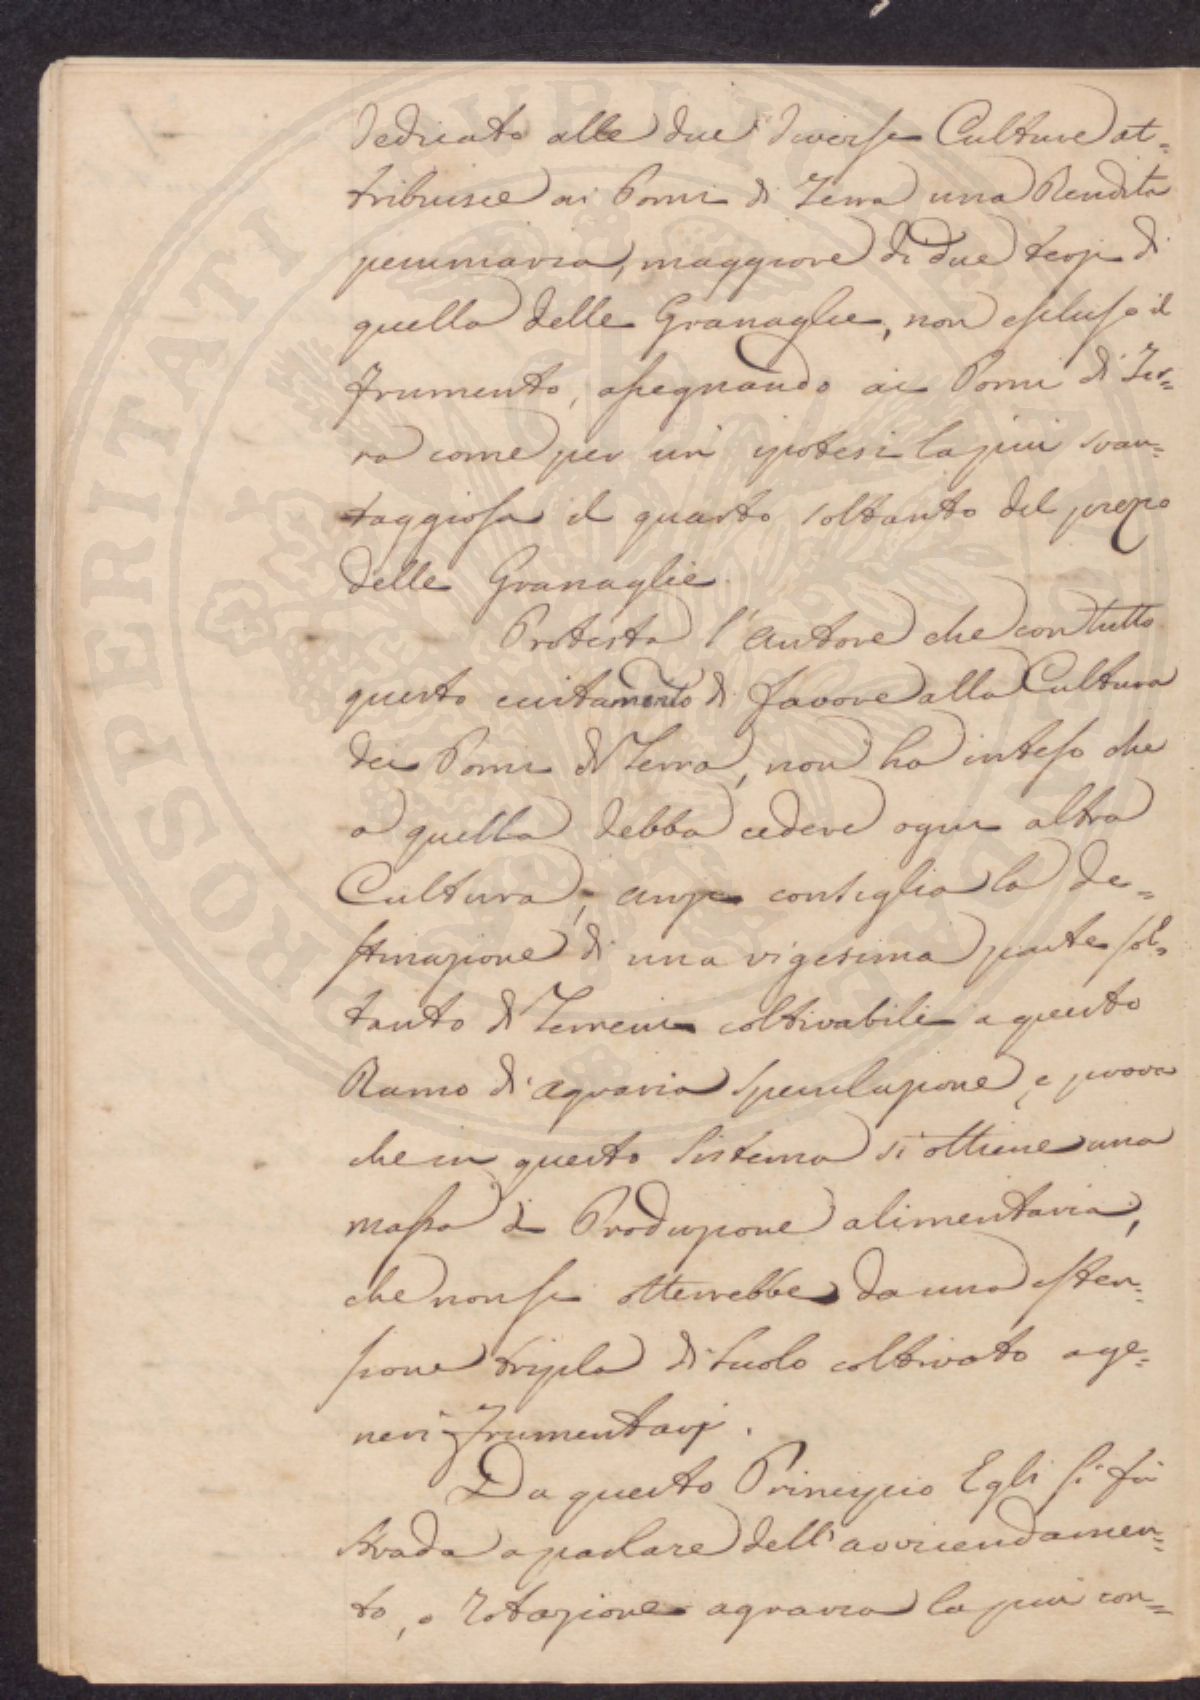 dedicato alle due diverse Culture at=
tribuisce ai Pomi di Terra una Rendita
pecuniaria, maggiore di due terzi di
quella delle Granaglie, non escluso il
frumento, assegnando ai Pomi di Ter=
ra come per un' ipotesi la piu svan=
taggiosa il quarto soltanto del prezzo
delle Granaglie.
Protesta l'autore che con tutto
questo eccitamento di favore alla Cultura
dei Pomi di Terra, non ha inteso che
a quella debba cedere ogni altra
Cultura; anzi consiglia la de=
stinazione di una vigesima parte sol=
tanto di Terreni coltivabili a questo
Ramo di agraria speculazione, e prova
che in questo Sistema si ottiene una
massa di Produzione alimentaria,
che non si otterrebbe da una esten=
sione tripla di suolo coltivato a ge=
neri frumentarj.
Da questo Principio Egli si fà
strada a parlare dell'avvicendamen=
to, o rotazione agraria la piu con=
PROSPERITATI PUBLICAE